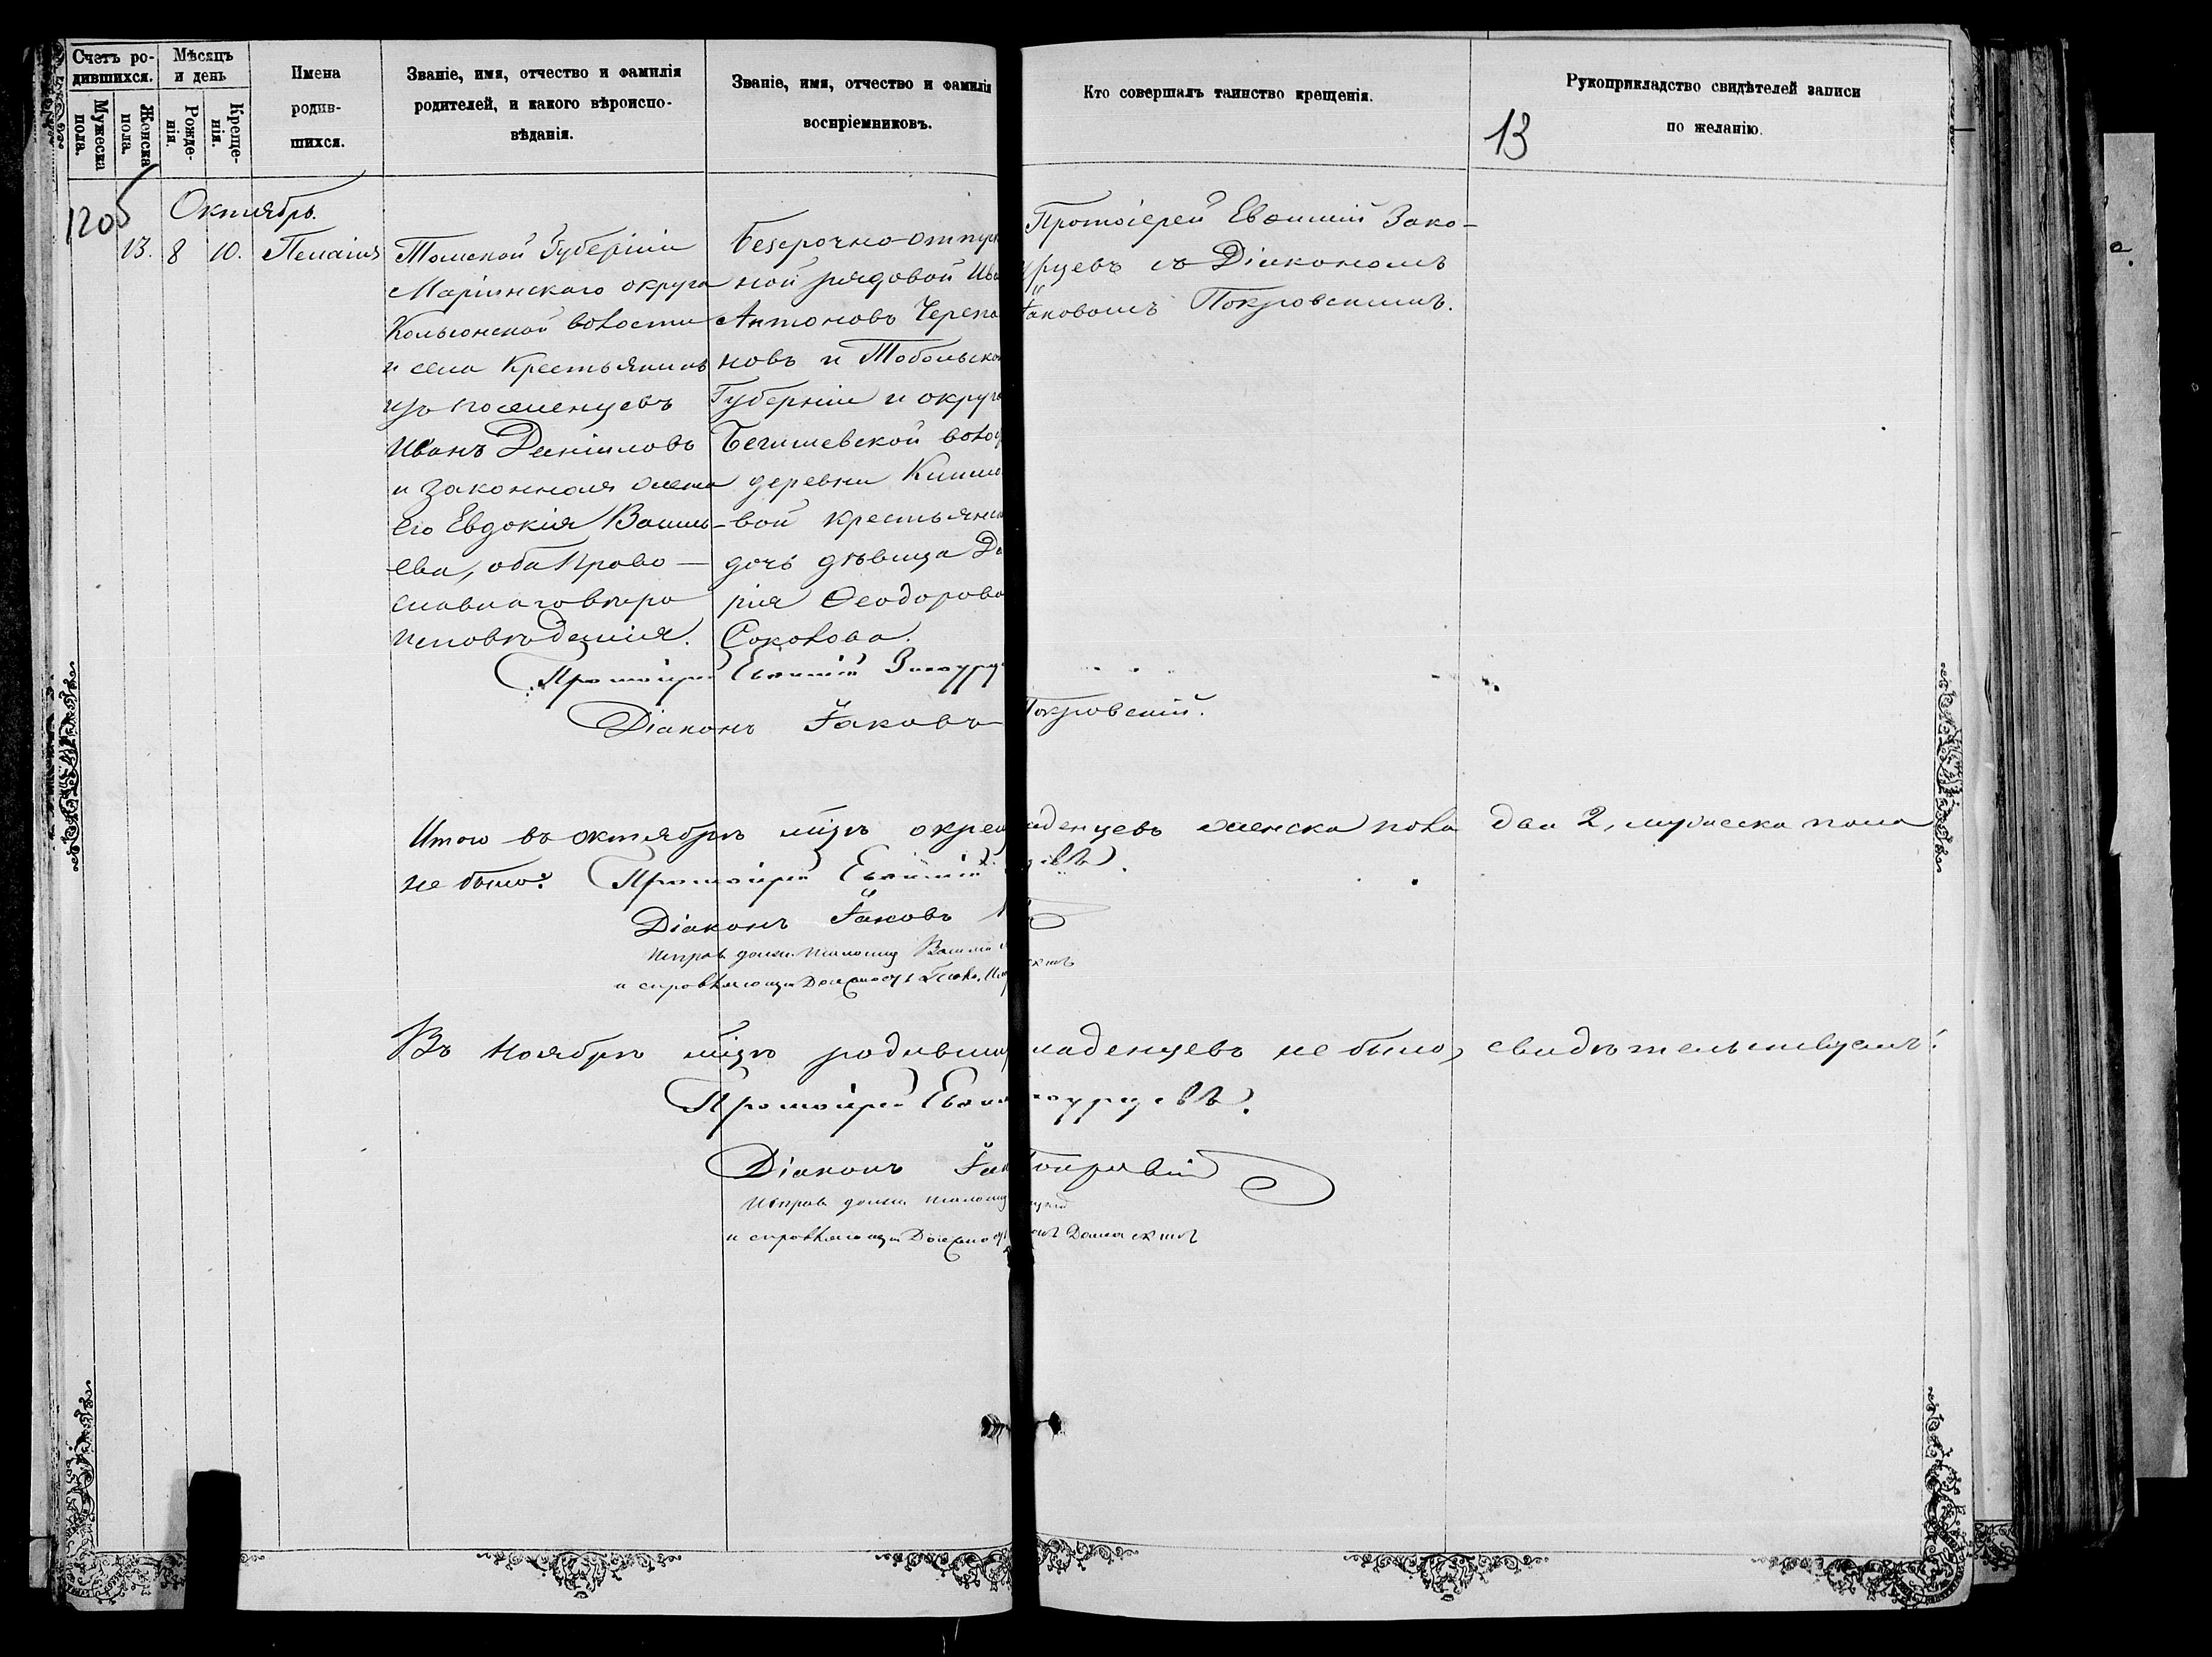 Счетъ ро-
дившихся.
Мѣсяцъ
и день
Мужеска
пола.
Женска
пола.
Рожде-
нія.
Креще-
нія.
Имена
родив-
шихся.
Званіе, имя, отчество и фамилія
родителей, и какого вѣроиспо-
вѣданія.
Званіе, имя, отчество и фамилія
воспріемниковъ.
Кто совершалъ таинство крещенія.
Рукоприкладство свидѣтелей записи
по желанію.
13
1205
Октябрь.
13. 8 10. Пелагія
Томской Губерніи
Маріинскаго округа
Кольюнской волости
и села Крестьянинъ
изъ поселенцевъ
Иванъ Даніиловъ
и законная жена
его Евдокія Василь-
ева, оба Право-
славнаго вѣро
исповѣданія.
безсрочно-отпуск
ной рядовой Ива
Антоновъ Черепа
новъ и Тобольско
Губерніи и округа
Бегишевской волос
деревни
вой крестьянск
дочь дѣвица Да
рія Ѳеодорова
Соколова.
Протоіерей Евѳимій Зако-
урцевъ съ Діакономъ
Іаковомъ Покровскимъ.
Протоіерей Евѳимій Закоурц
Діаконъ Іаковъ Покровскій.
Итого въ октябрѣ мцѣ окрещ аденцевъ женска пола два 2, мужеска пола
не было. Протоіерей Евѳимій цевъ.
Діаконъ Іаковъ
Исправ. долж. Псаломщ Василій
и справляющій Должность
Въ Ноябрѣ мцѣ родивших ладенцевъ не было, свидѣтельствуемъ:
Протоіерей Евѳим коурцевъ.
Діаконъ Іак Покровскій
Исправ. долж. псаломщ
и справляющій Должность